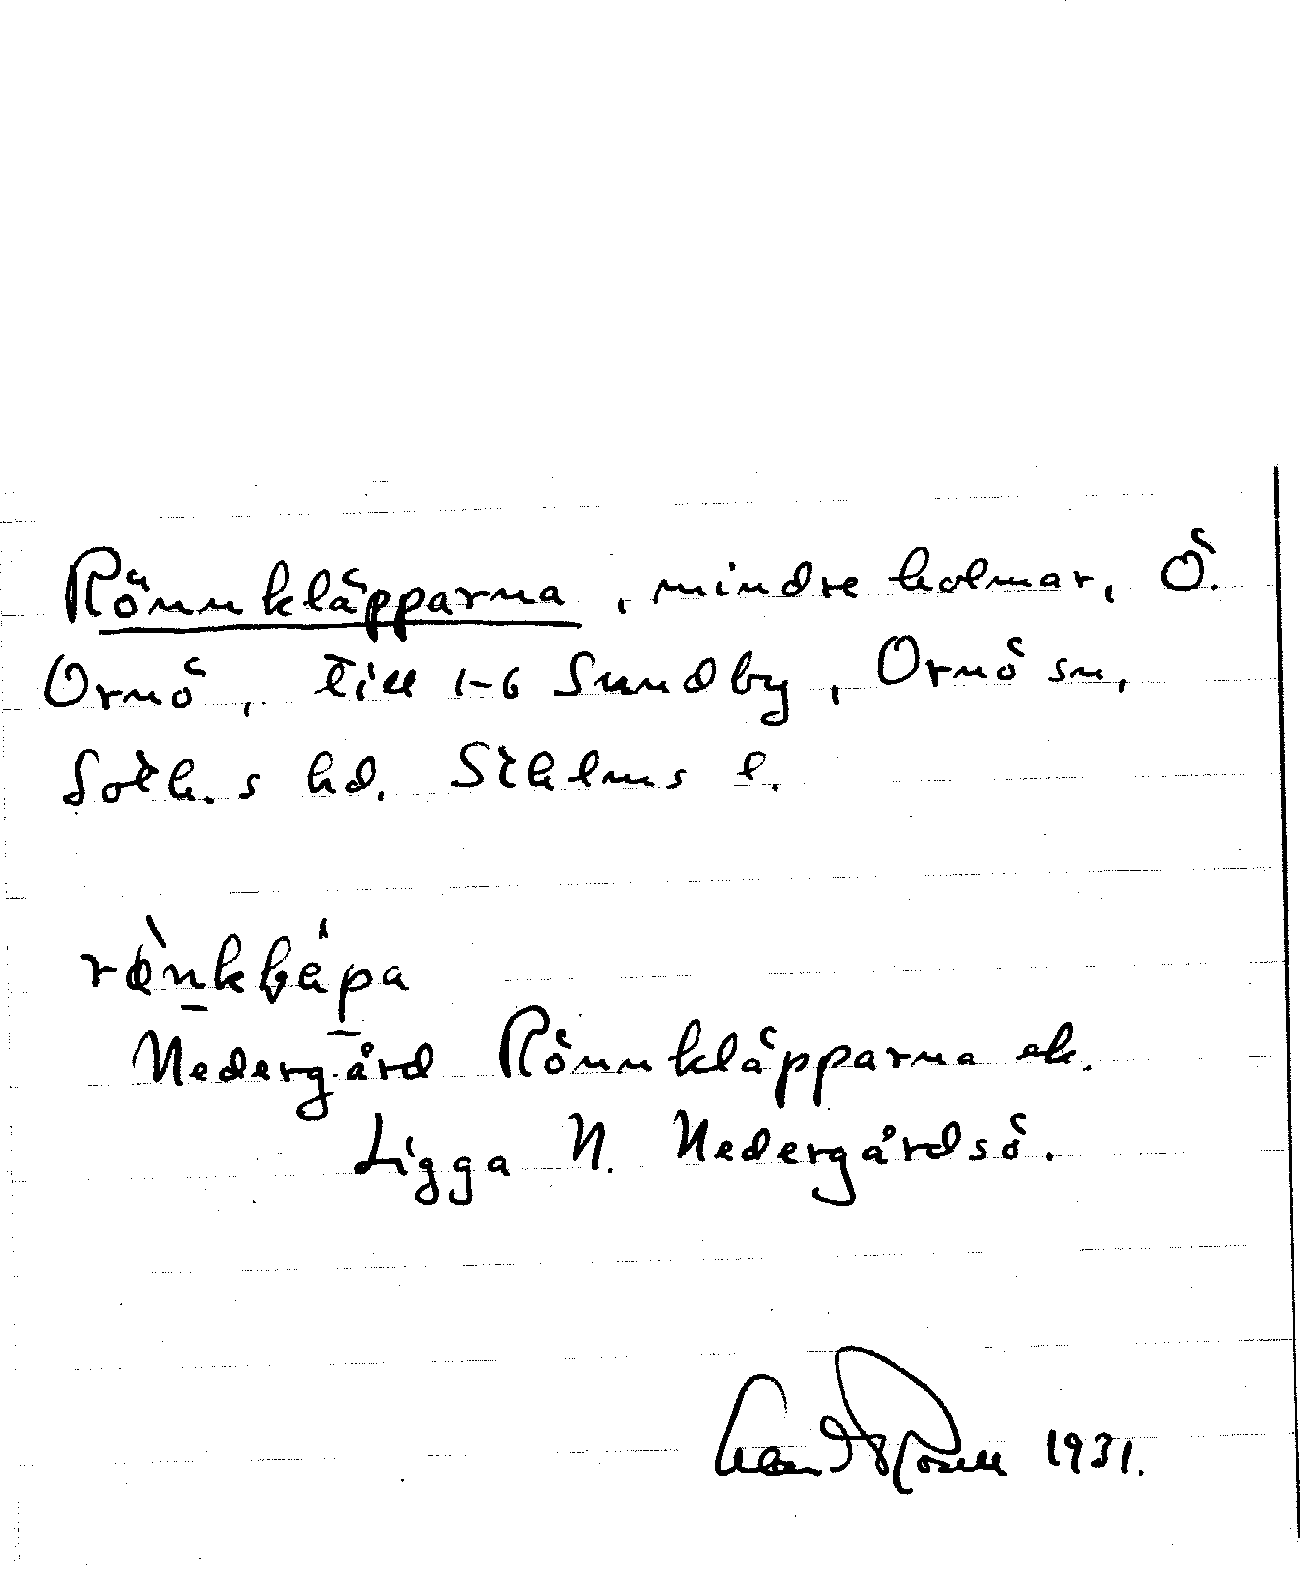 Rönnkläpparna, mindre holmar, Ö.
Ornö, till 1-6 Sundby, Ornö sn,
Soth. s hd. Sthlms l.
Nedergård Rönnkläpparna ek.
Ligga N. Nedergårdsö.
1931.